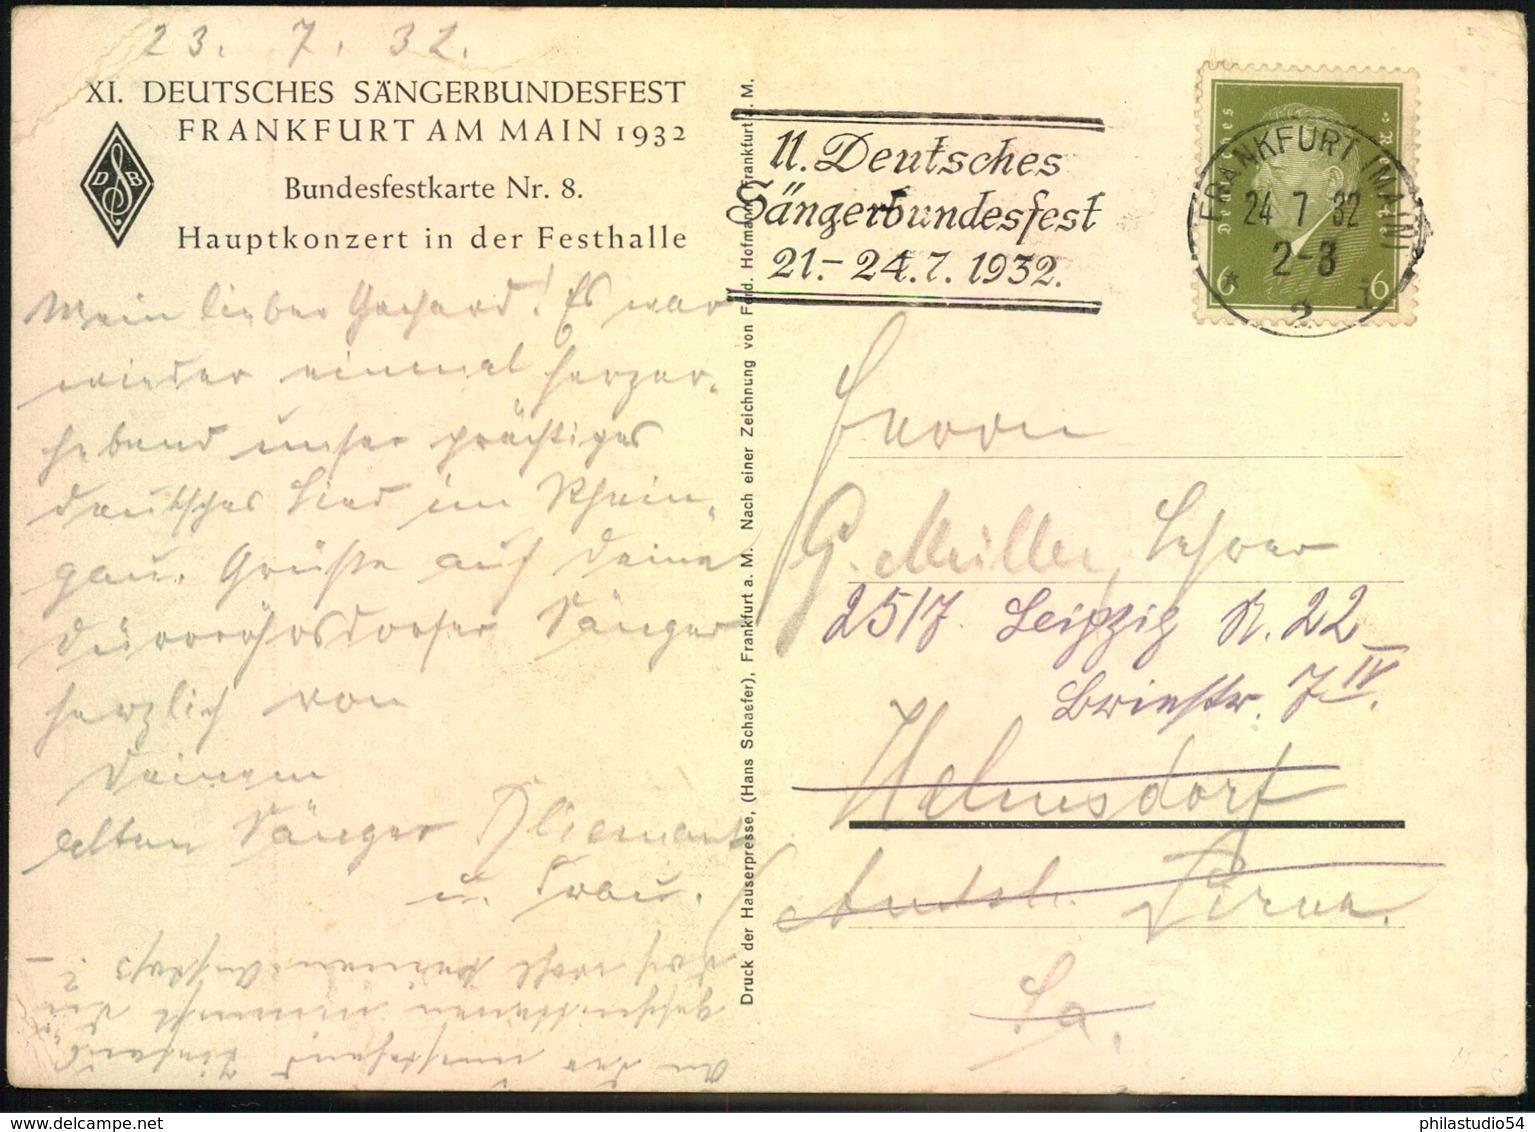 23. 7. 32.
XI. DEUTSCHES SÄNGERBUNDESFEST
FRANKFURT AM MAIN 1932
D B
Bundesfestkarte Nr. 8.
Hauptkonzert in der Festhalle
Mein lieber Gerhard! Es war
wieder einmal herzer-
hebend unser prächtiges
deutsches Lied im Rhein-
gau. Grüße auf deine
dürrröhrsdorfer Sänger
herzlich von
Deinem
alten Sänger
u. Frau.
An der
geschnittenen nimmst du
doch wohl keinen Anstoß?
Druck der Hauserpresse, (Hans Schaefer), Frankfurt a. M. Nach einer Zeichnung von Ferd. Hofmann, Frankfurt a. M.
11. Deutsches
Sängerbundesfest
21.-24.7.1932.
Deutsches Reich
6 6
FRANKFURT (MAIN)
24 7 32
2-3
* 2 i
Herrn
G. Müller, Lehrer
25/7. Leipzig N. 22
Briestr. 7 IV.
Helmsdorf
Amtsh. Pirna.
Sa.
philastudio54